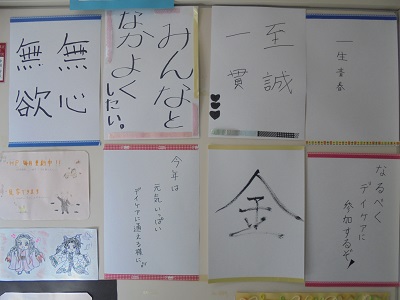 無心
無欲
みんなと
なかよく
したい。
至誠
一貫
一生青春
今年は
元気いっぱい
デイケアに通える様に
金
なるべく
デイケアに
参加するぞ!